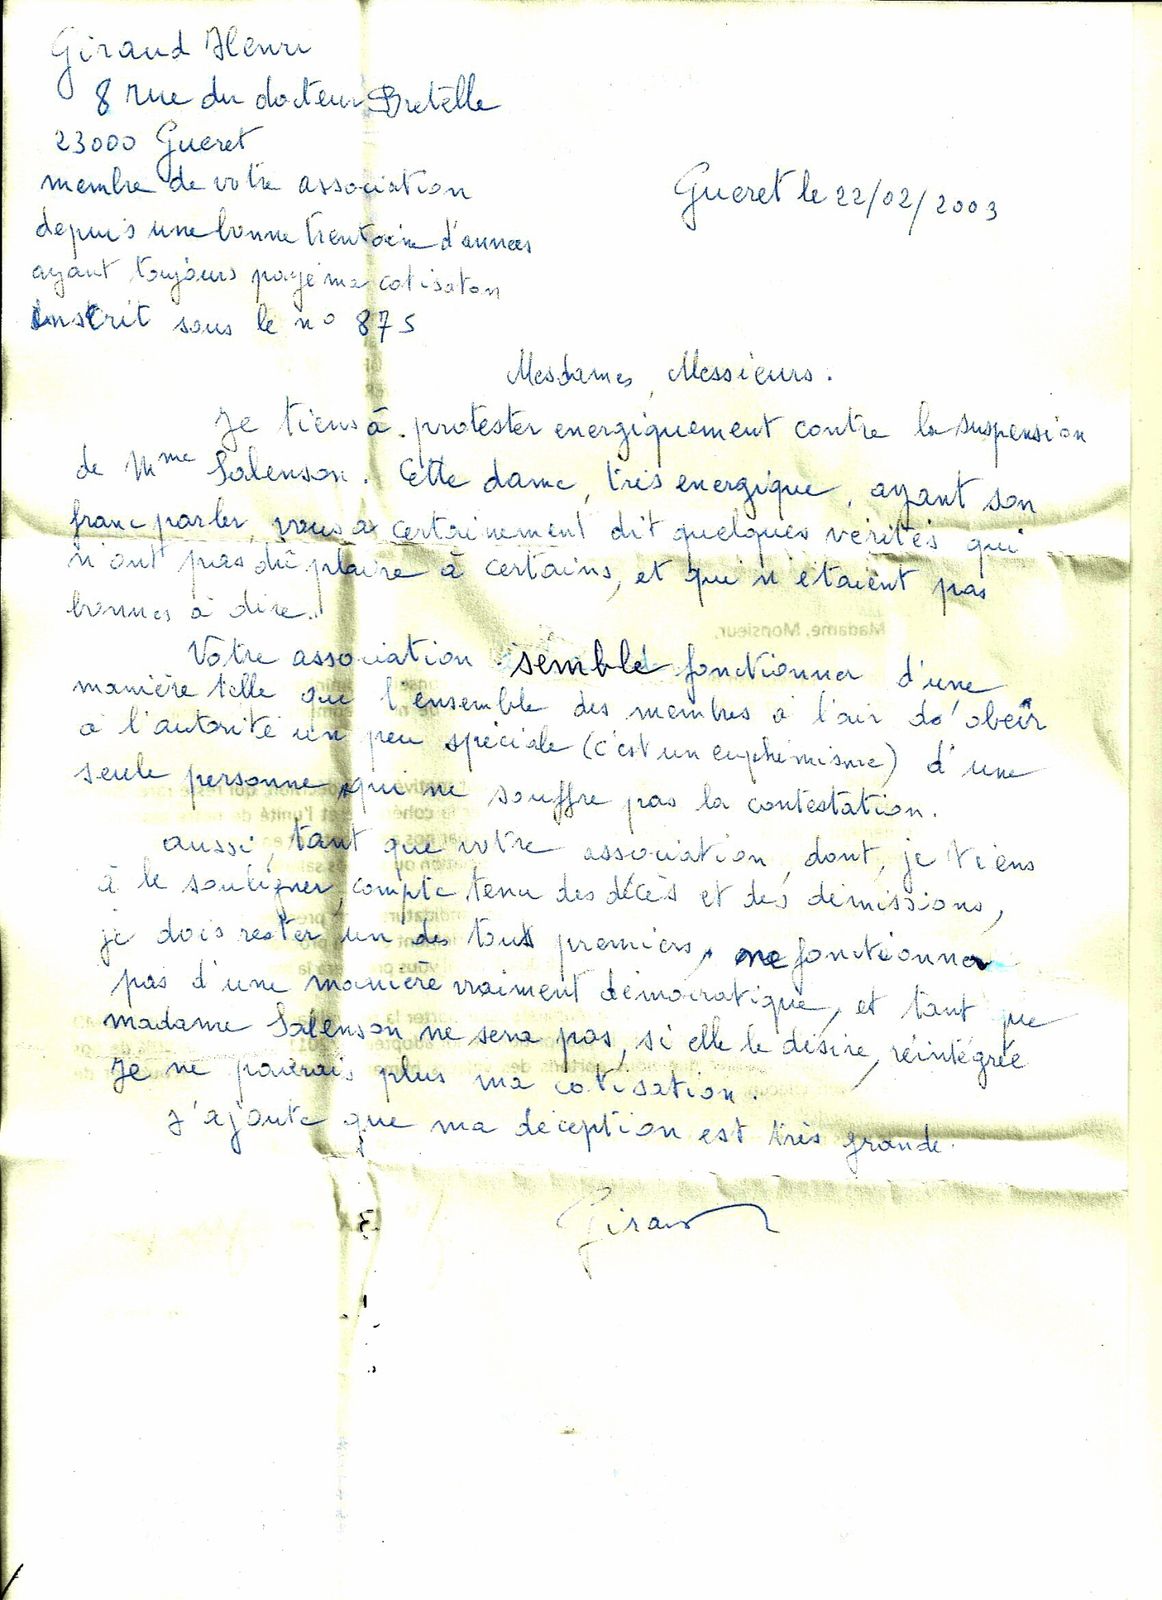 Giraud Henri
8 rue du docteur Bretelle
23000 Gueret
membre de votre association
depuis une bonne trentaine d'annees
ayant toujours payé ma cotisaton
inscrit sous le n° 875
Gueret le 22/02/2003
Mesdames, Messieurs.
Je tiens à protester energiquement contre la suspension
de Mme Salenson. Cette dame, très energique, ayant son
franc parler, vous a certainement dit quelques vérités qui
n'ont pas dû plaire à certains, et qui n'étaient pas
bonnes à dire.
Votre association semble fonctionner d'une
manière telle que l'ensemble des membres a l'air d'obeir
à l'autorité un peu spéciale (c'est un euphémisme) d'une
seule personne qui ne souffre pas la contestation.
aussi, tant que votre association, dont, je tiens
à le souligner, compte tenu des décès et des démissions,
je dois rester un des tous premiers, ne fonctionnera
pas d'une manière vraiment démocratique, et tant que
madame Salenson ne sera pas, si elle le désire, réintégrée
je ne paierais plus ma cotisation.
J'ajoute que ma déception est très grande.
Giraud
Madame, Monsieur,